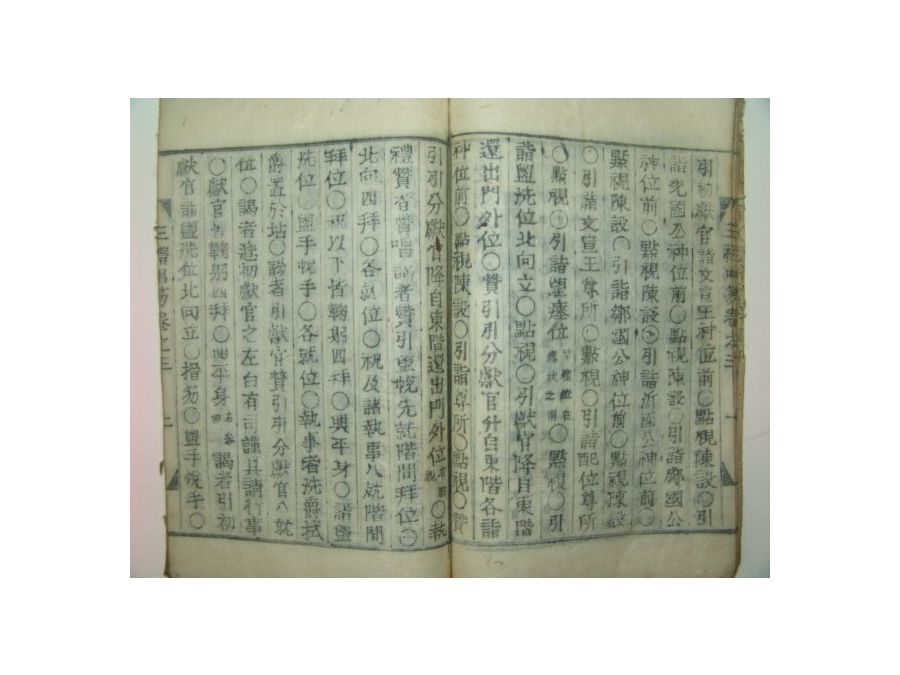 引初獻官詣文宣王神位前○點視陳設○引
詣兗國公神位前○點視陳設○引詣郕國公
神位前○點視陳設○引詣沂國公神位前○
點視陳設○引詣鄒國公神位前○點視陳設
○引詣文宣王尊所○點視○引詣配位尊所
○點視○引詣望瘞位○點視○引
詣盥洗位北向立○點視○引獻官降自東階
還出門外位○贊引引分獻官升自東階各詣
神位前○點視陳設○引詣尊所○點視○贊
引引分獻官降自東階還出門外位 右點視 執
禮贊者贊唱謁者贊引盥帨先就階間拜位○
北向四拜○各就位○祝及諸執事入就階間
拜位○祝以下皆鞠躬四拜○興平身○詣盥
洗位○盥手帨手○各就位○執事者洗爵拭
爵置於坫○謁者引獻官贊引引分獻官入就
位○謁者進初獻官之左白有司謹具請行事
○獻官皆鞠躬四拜○興平身 謁者引初
獻官詣盥洗位北向立○搢笏○盥手帨手○